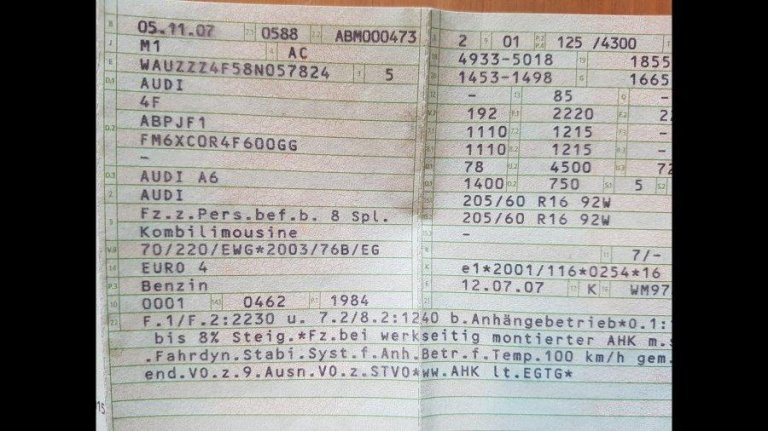 B 05.11.07 0588 ABM000473 2 01 125 /4300
M1 AC 4933-5018 1855
WAUZZZ4F58N057824 5 1453-1498 1665
AUDI - 85 -
4F 192 2220
ABPJF1 1110 1215
FM6XCOR4F600GG 1110 1215
- 78 4500
AUDI A6 1400 750 5
AUDI 205/60 R16 92W
Fz.z.Pers.bef.b. 8 Spl. 205/60 R16 92W
Kombilimousine -
70/220/EWG*2003/76B/EG 7/-
EURO 4 e1*2001/116*0254*16
Benzin 12.07.07 K WM97
0001 0462 1984
F.1/F.2:2230 u. 7.2/8.2:1240 b.Anhängebetrieb*0.1:
bis 8% Steig.*Fz.bei werkseitig montierter AHK m.s
.Fahrdyn.Stabi.Syst.f.Anh.Betr.f.Temp.100 km/h gem.
end.VO.z.9.Ausn.VO.z.STVO*ww.AHK lt.EGTG*